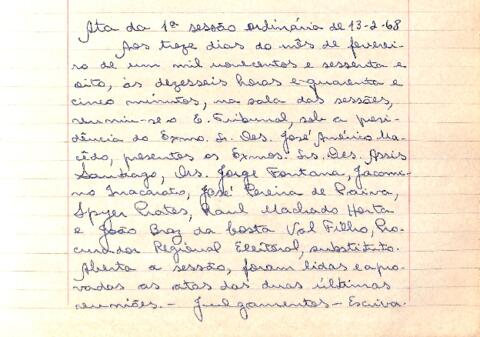 Ata da 1ª sessão ordinária de 13-2-68
Aos treze dias do mês de feverei
ro de um mil novecentos e sessenta e
oito, às dezesseis horas e quarenta e
cinco minutos, na sala das sessões,
reuniu-se o E. Tribunal, sob a presi
dência do Exmo. Sr. Des. José Américo Ma
cêdo, presentes os Exmos. Srs. Des. Assis
Santiago, Drs. Jorge Fontana, Jacomi
no Inacarato, José Pereira de Paiva,
Spyer Prates, Raul Machado Horta
e João Braz da Costa Val Filho, Pro
curador Regional Eleitoral, substituto.
Aberta a sessão, foram lidas e apro
vadas as atas das duas últimas
reuniões. - Julgamentos - Escriva.